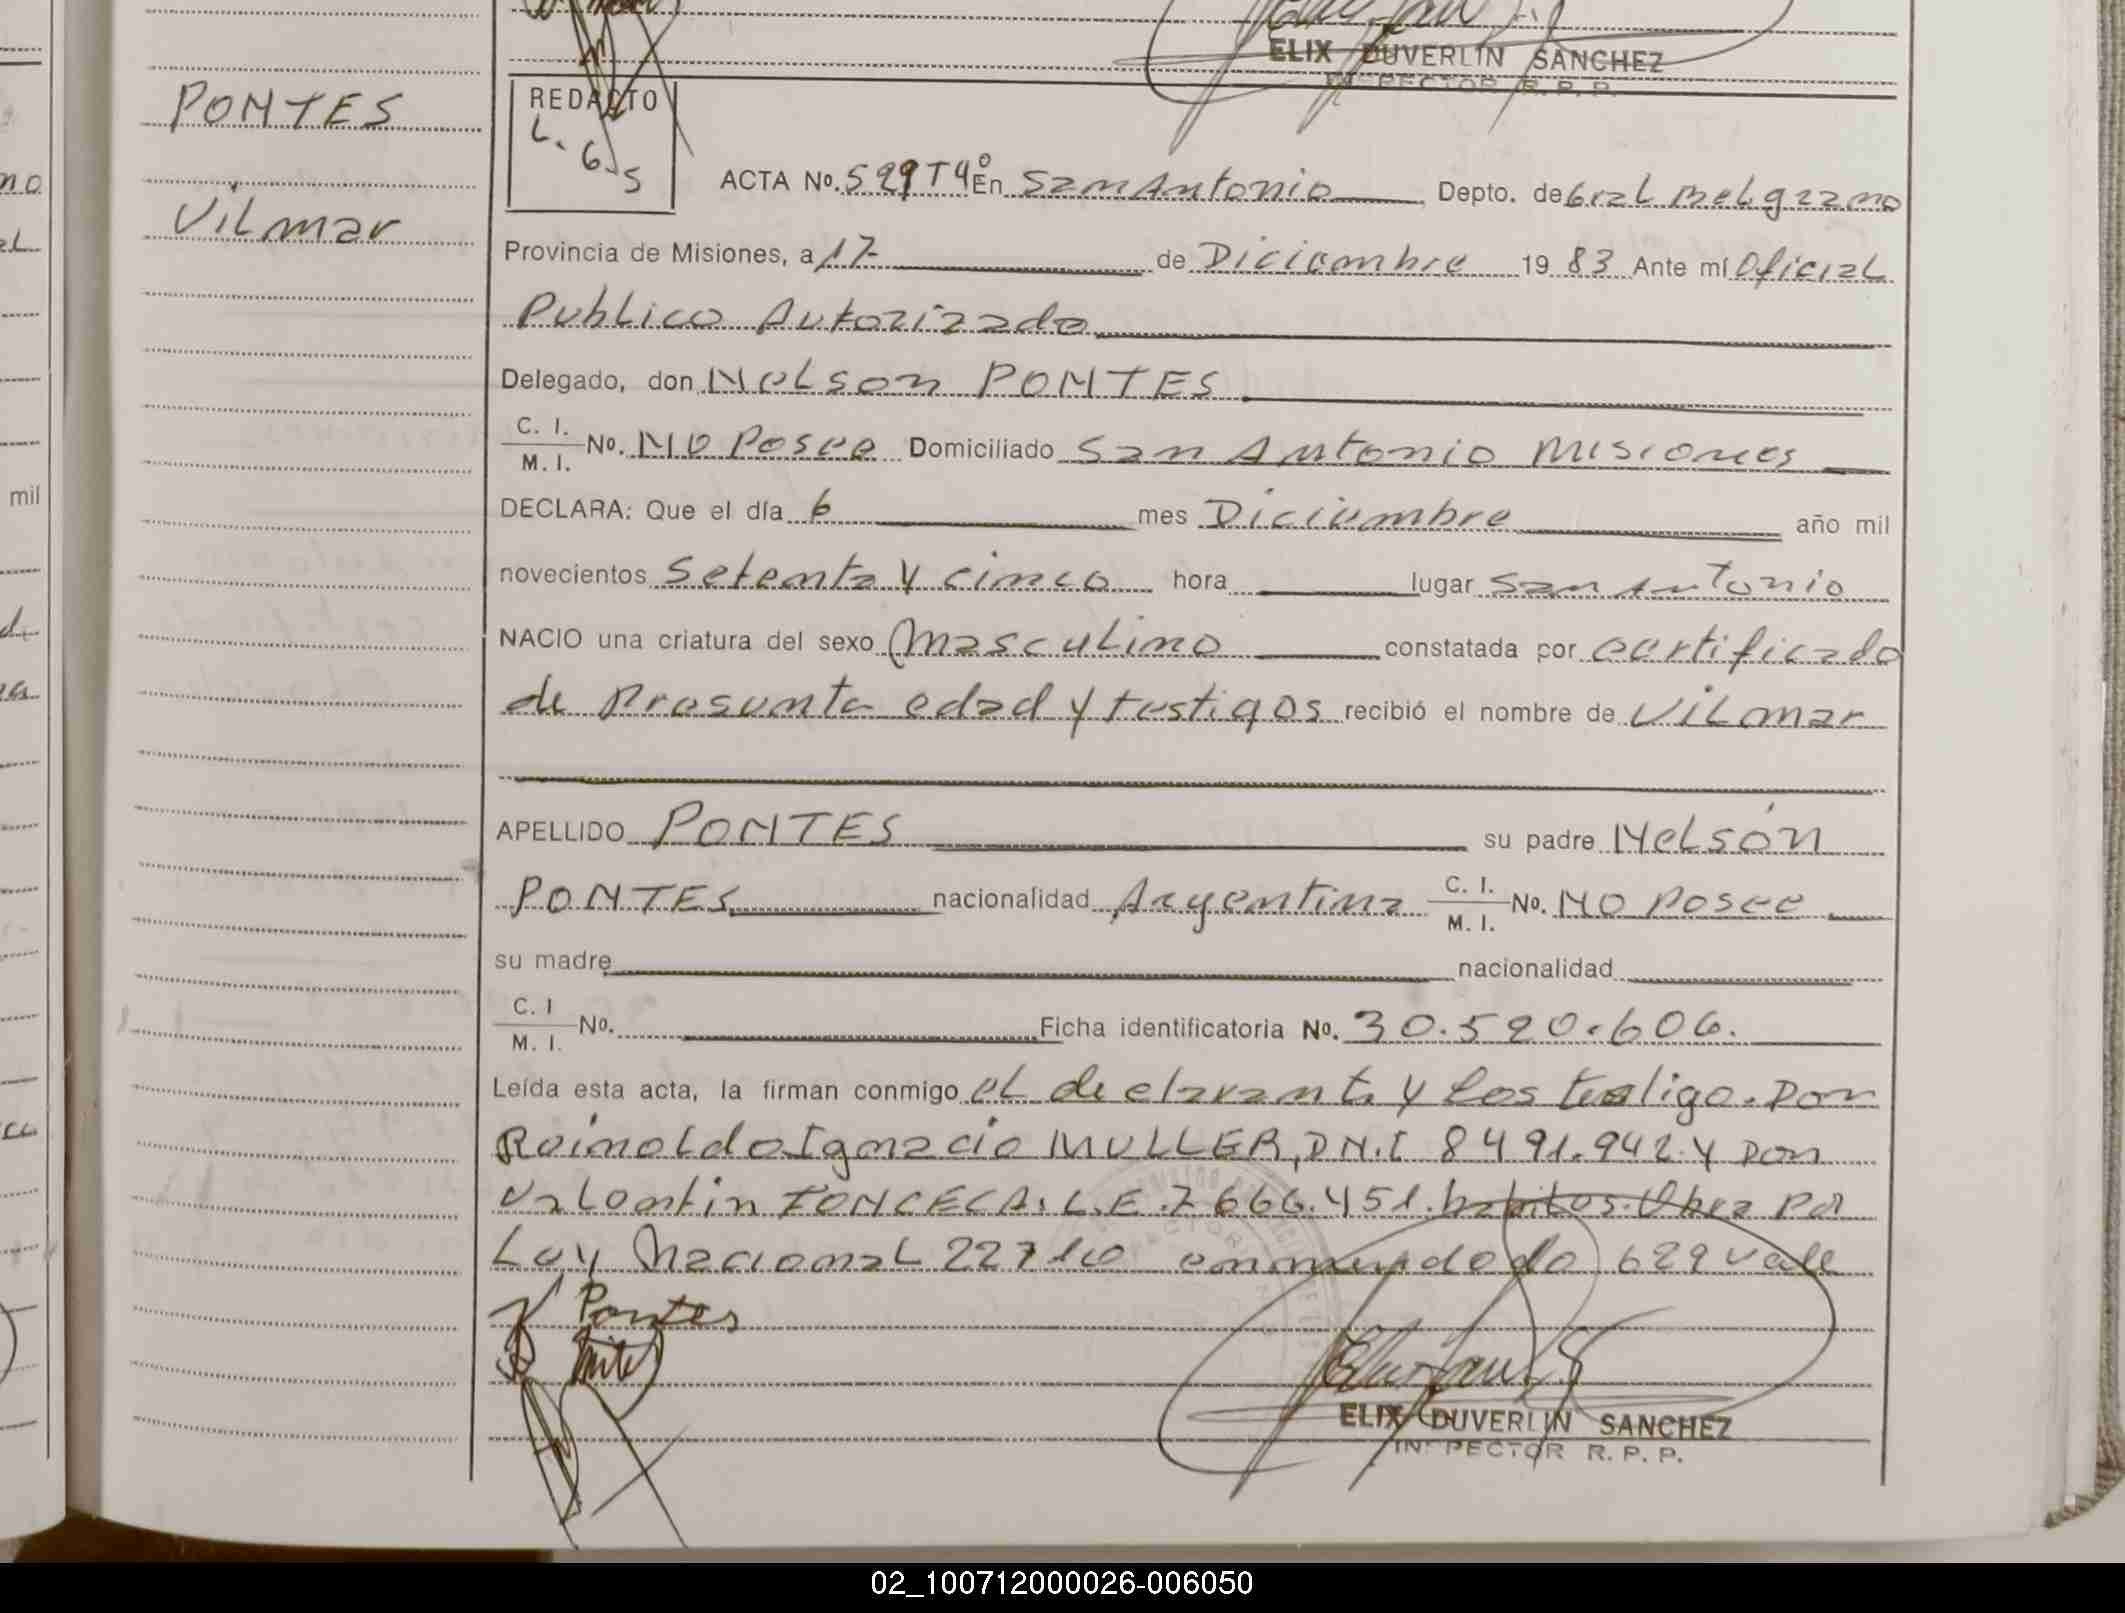 ELIX DUVERLIN SANCHEZ
INSPECTOR R. P. P.
PONTES
Vilmar
REDACTO
L. G. S
ACTA No. 529 Tº4 En San Antonio Depto. de Gral Belgrano
Provincia de Misiones, a 17 de Diciembre 19 83 Ante mí Oficial
Publico Autorizado
Delegado, don Nelson PONTES
C. I.
M. I. No. NO Posee Domiciliado San Antonio Misiones
DECLARA: Que el día 6 mes Diciembre año mil
novecientos Setenta y cinco hora lugar San Antonio
NACIO una criatura del sexo Masculino constatada por certificado
de Presunta edad y testigos recibió el nombre de Vilmar
APELLIDO PONTES su padre Nelsón
PONTES nacionalidad Argentina C. I. M. I. No. NO Posee
su madre nacionalidad
C. I M. I. No. Ficha identificatoria No. 30.520.606.
Leída esta acta, la firman conmigo el declarante y los testigo. Don
Reinoldo Ignacio MULLER, DN.I 8491.942 y Don
Valentin FONCECA. L.E. 7666.451. habitos. Obra Por
Ley Nacional 22710 enmendado 629 vale
Pontes
ELIX DUVERLIN SANCHEZ
INSPECTOR R. P. P.
mil
02_100712000026-006050